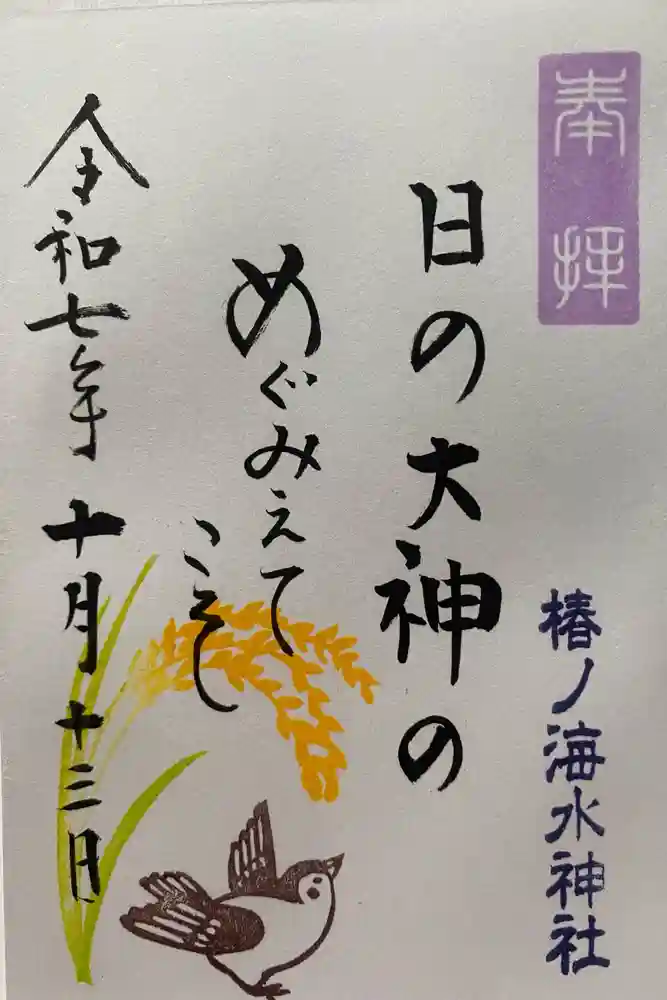 奉拝
椿ノ海水神社
日の大神の
めぐみえて
こそ
令和七年 十月十三日